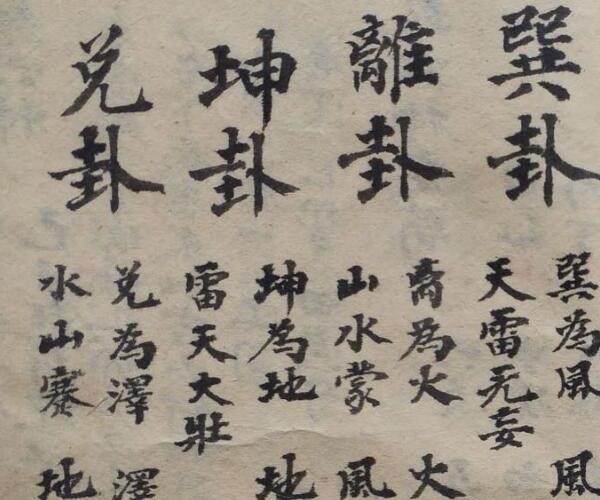 巽卦
巽為風 風
天雷无妄
離卦
离為火 火
山水蒙 風
坤卦
坤為地 地
雷天大壯
兑卦
兑為澤 澤
水山蹇 地